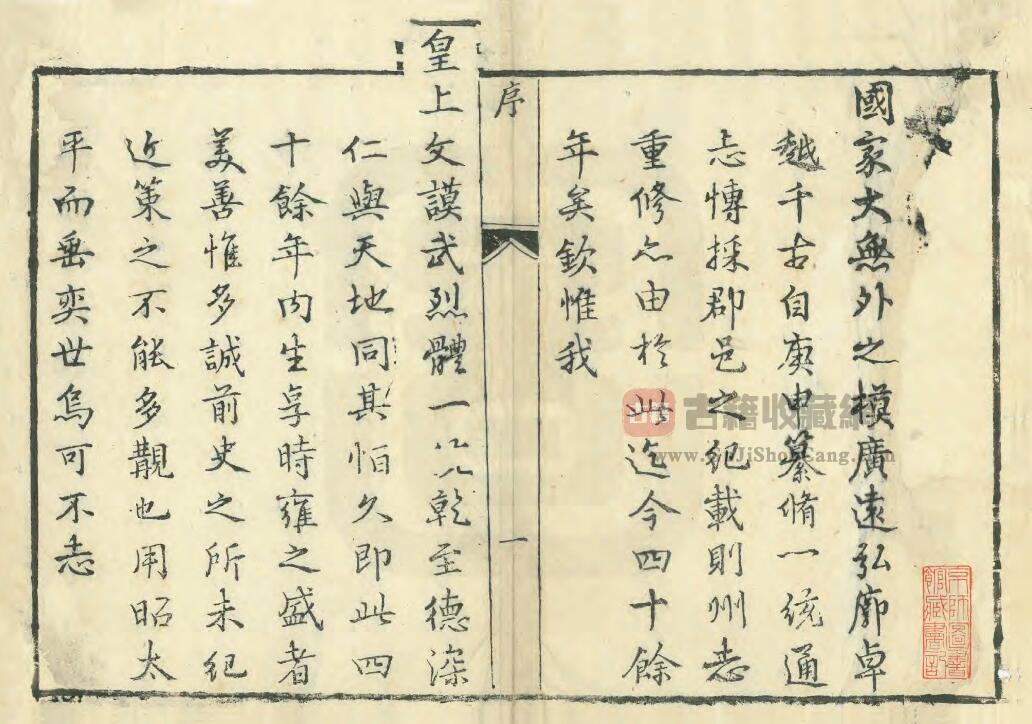 國家大無外之模廣遠弘廓卓
越千古自庚申纂脩一統通
志慱採郡邑之紀載則州志
重修亦由於此迄今四十餘
年矣欽惟我
序
一
皇上文謨武烈體一以乾至德深
仁與天地同其恒久即此四
十餘年内生享時雍之盛者
美善惟多誠前史之所未紀
近策之不能多覯也用昭太
平而垂奕世烏可不志
京師圖書
館藏書記
古籍收藏